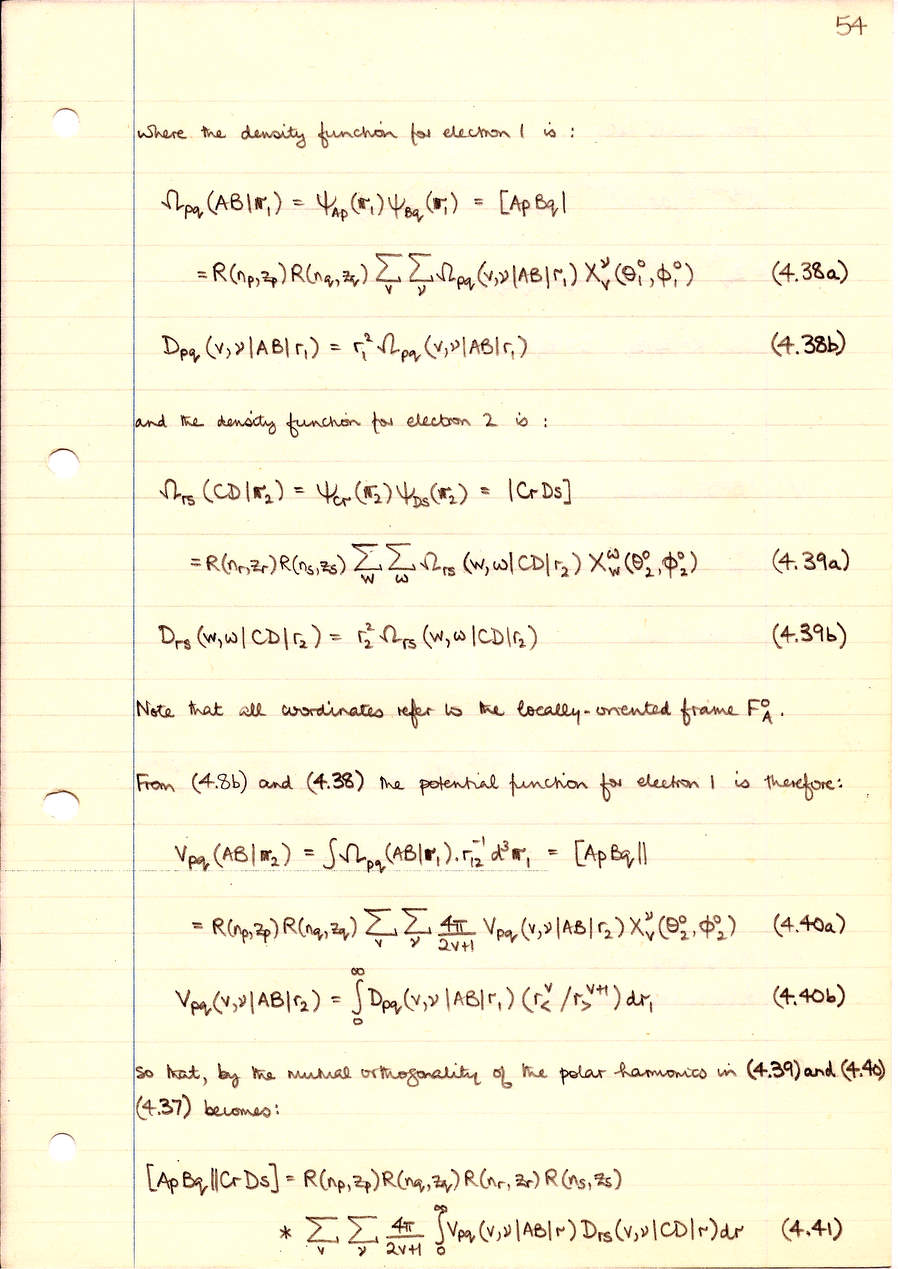 54
where the density function for electron 1 is :
Ω_pq (AB|r₁) = ψ_Ap (r₁) ψ_Bq (r₁) = [Ap Bq|
= R(n_p, z_p) R(n_q, z_q) ∑_v ∑_ν Ω_pq (v,ν|AB|r₁) X_v^ν (θ₁°, φ₁°) (4.38a)
D_pq (v,ν|AB|r₁) = r₁² Ω_pq (v,ν|AB|r₁) (4.38b)
and the density function for electron 2 is :
Ω_rs (CD|r₂) = ψ_Cr (r₂) ψ_Ds (r₂) = |Cr Ds]
= R(n_r, z_r) R(n_s, z_s) ∑_w ∑_ω Ω_rs (w,ω|CD|r₂) X_w^ω (θ₂°, φ₂°) (4.39a)
D_rs (w,ω|CD|r₂) = r₂² Ω_rs (w,ω|CD|r₂) (4.39b)
Note that all coordinates refer to the locally-oriented frame F_A°.
From (4.8b) and (4.38) the potential function for electron 1 is therefore:
V_pq (AB|r₂) = ∫ Ω_pq (AB|r₁) . r₁₂⁻¹ d³r₁ = [Ap Bq||
= R(n_p, z_p) R(n_q, z_q) ∑_v ∑_ν 4π/2v+1 V_pq (v,ν|AB|r₂) X_v^ν (θ₂°, φ₂°) (4.40a)
V_pq (v,ν|AB|r₂) = ∫₀^∞ D_pq (v,ν|AB|r₁) (r_<^v / r_>^v+1) dr₁ (4.40b)
so that, by the mutual orthogonality of the polar harmonics in (4.39) and (4.40)
(4.37) becomes:
[Ap Bq||Cr Ds] = R(n_p, z_p) R(n_q, z_q) R(n_r, z_r) R(n_s, z_s)
* ∑_v ∑_ν 4π/2v+1 ∫₀^∞ V_pq (v,ν|AB|r) D_rs (v,ν|CD|r) dr (4.41)